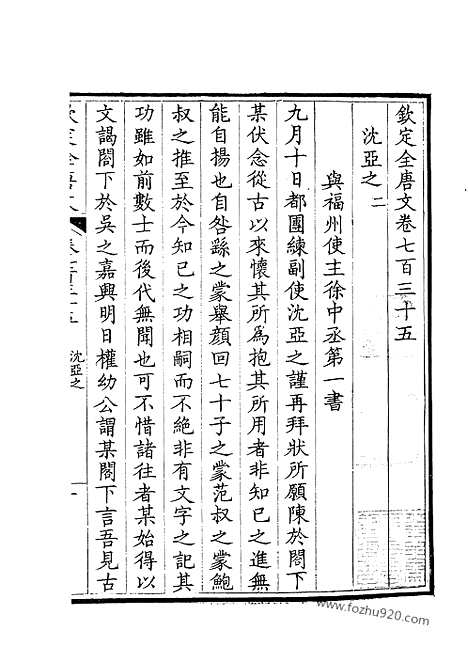 欽定全唐文卷七百三十五
沈亞之二
與福州使主徐中丞第一書
九月十日都團練副使沈亞之謹再拜狀所願陳於閤下
某伏念從古以來懷其所為抱其所用者非知已之進無
能自揚也自咎繇之蒙舉顏回七十子之蒙范叔之蒙鮑
叔之推至於今知已之功相嗣而不絶非有文字之記其
功雖如前數士而後代無聞也可不惜諸往者某始得以
文謁閤下於吳之嘉興明日權幼公謂某閤下言吾見古
欽定全唐文
卷七百三十五
沈亞之
一
www.fozhu920.com